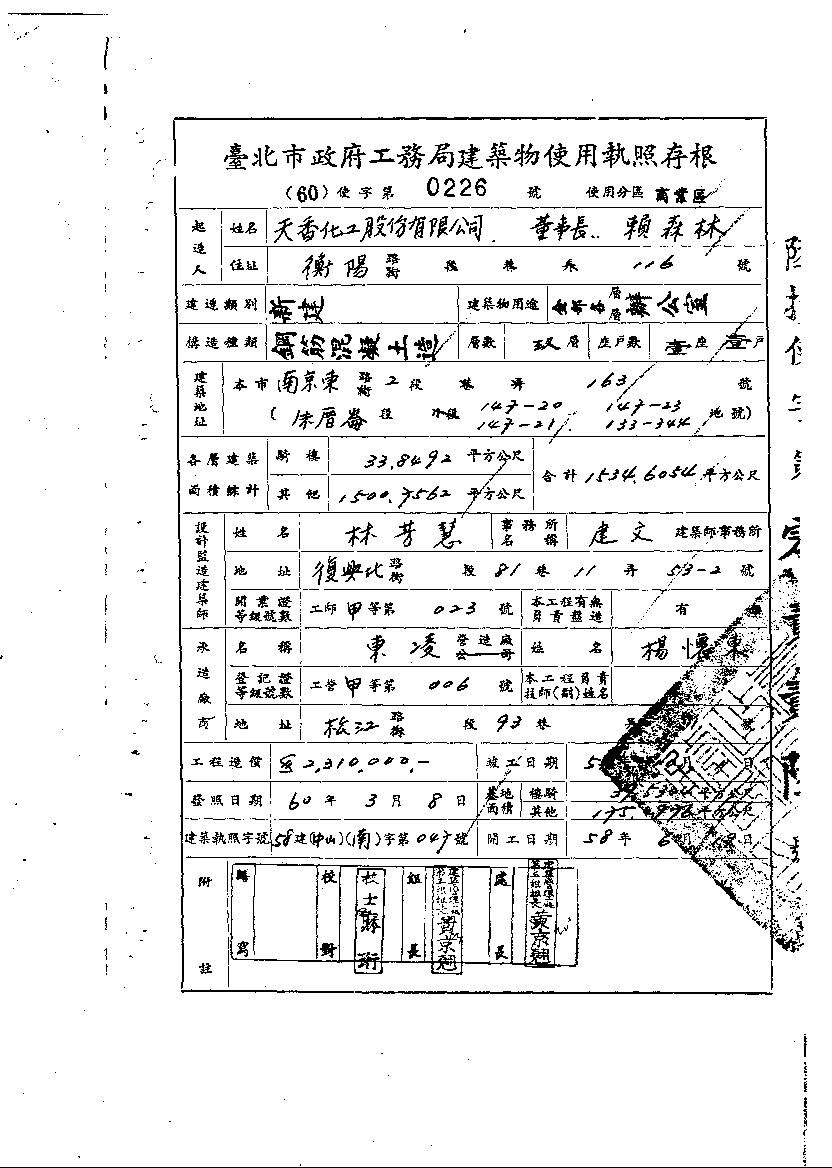 臺北市政府工務局建築物使用執照存根
(60)使字第 0226 號 使用分區 商業區
起造人 姓名 天香化工股份有限公司 董事長 賴森林
住址 衡陽 路街 段 巷 116 號
建造類別 新建 建築物用途 層層辦公室
構造種類 鋼筋混凝土造 層數 層 座戶數 壹座 壹戶
建築地址 本市 南京東 路街 2 段 巷 弄 163 號
(朱厝崙 段 小段 147-20 147-23 地號)
147-21 133-344
各層建築面積總計 騎樓 33.8492 平方公尺 合計 1534.6054 平方公尺
其他 1500.7562 平方公尺
設計監造建築師 姓名 林芳慧 事務所名稱 建文 建築師事務所
地址 復興北 路街 段 81 巷 11 弄 53-2 號
開業證等級號數 工師甲等第 023 號 本工程有無負責監造 有
承造廠商 名稱 東凌 營造廠公司 姓名 楊懷東
登記證等級號數 工營甲等第 006 號 本工程負責技師(副)姓名
地址 松江 路街 段 93 巷 號
工程造價 2,310,000.- 竣工日期 日
發照日期 60 年 3 月 8 日 基地面積 騎樓 平方公尺
其他 平方公尺
建築執照字號 58建(中山)(南)字第047號 開工日期 58 年 6 月 日
附註 繕寫 校對 組長 黃京翹 處長 黃京翹